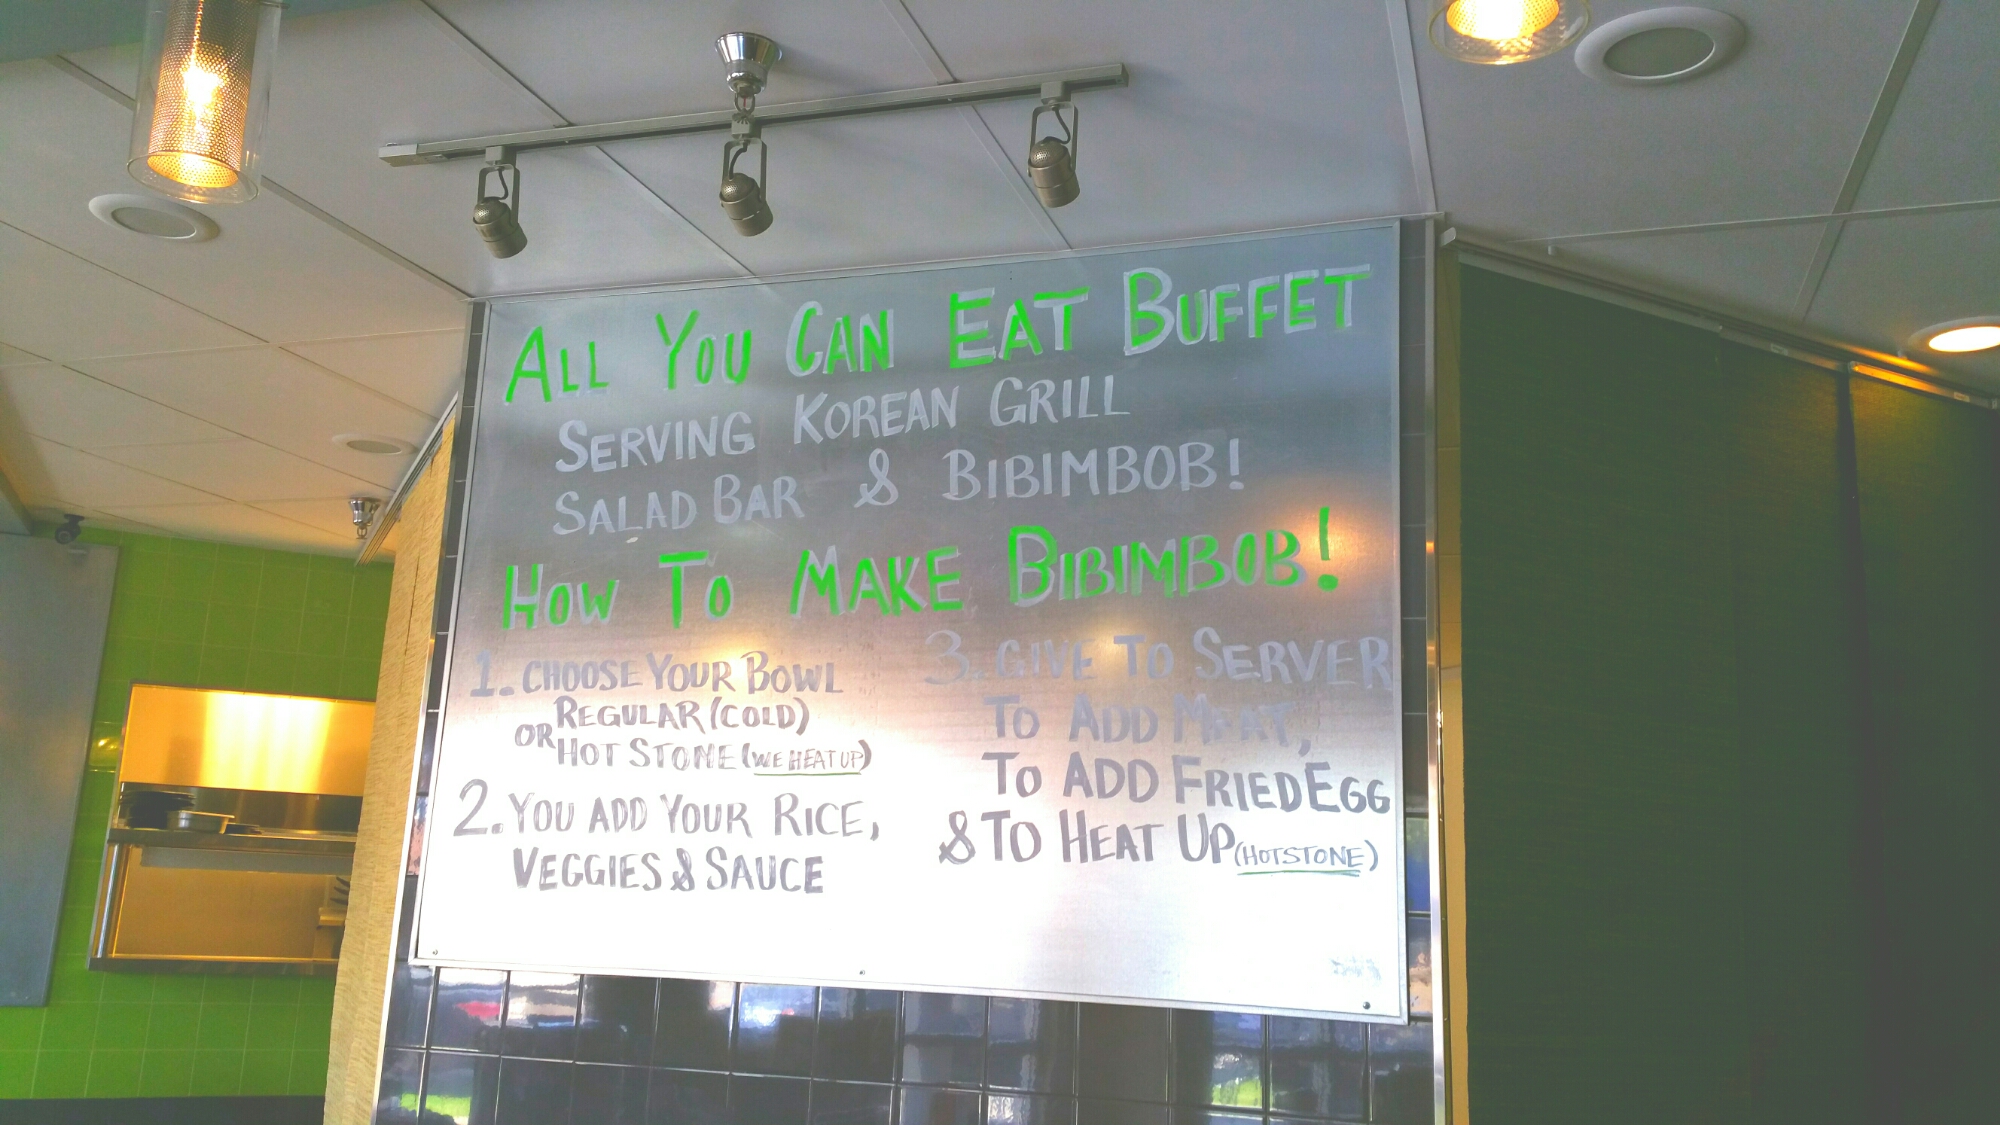 ALL YOU CAN EAT BUFFET
SERVING KOREAN GRILL
SALAD BAR & BIBIMBOB!
HOW TO MAKE BIBIMBOB!
1. CHOOSE YOUR BOWL
REGULAR (COLD)
OR
HOT STONE (WE HEAT UP)
2. YOU ADD YOUR RICE,
VEGGIES & SAUCE
3. GIVE TO SERVER
TO ADD MEAT,
TO ADD FRIED EGG
& TO HEAT UP (HOTSTONE)